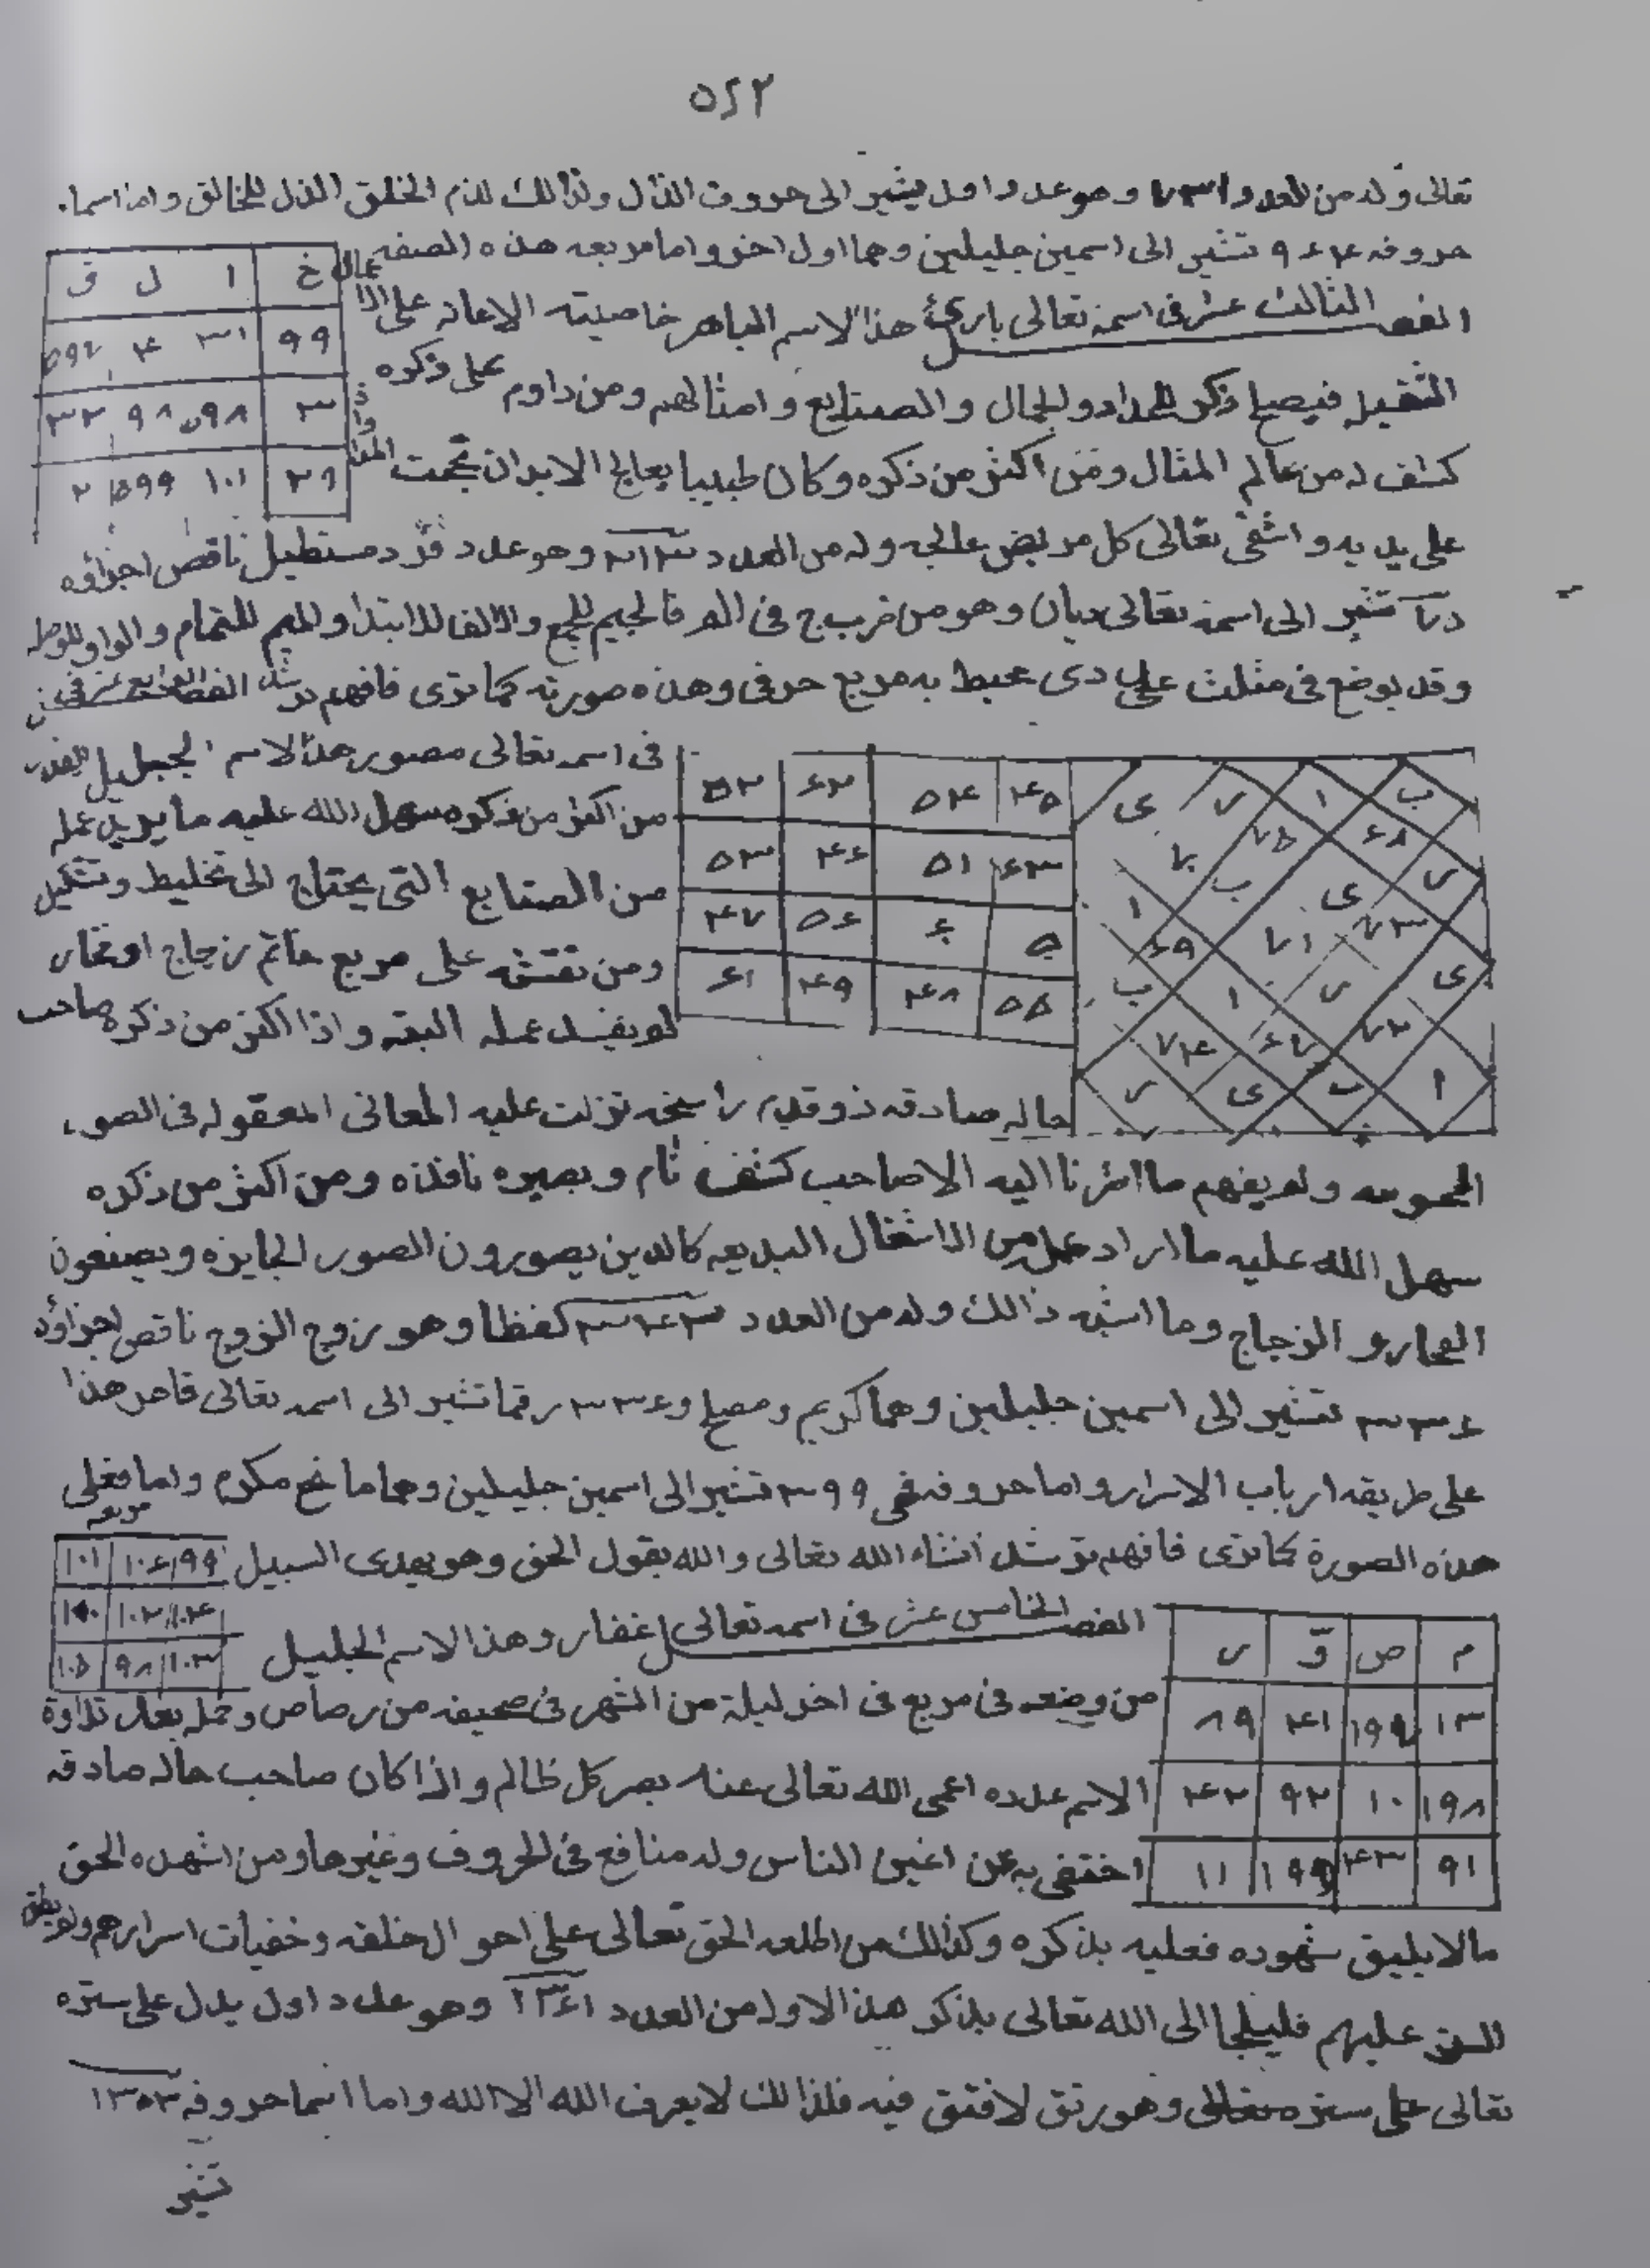 ٥٢٢
تعالى وله من العدد ٧٣١ وهو عدد اول يشير الى حروف الذال ولذالك لذم الخلق الذل للخالق واما اسماء
حروفه ٩٤٤ تشير الى اسمين جليلين وهما اول اخر واما مربعه هذه الصفه
خ ا ل ق
٩٩ ٣١ ٤ ٥٩٧
٣ ٥٩٨ ٩٨ ٣٢
٢٩ ١٠١ ٥٩٩ ٢
الفصل الثالث عشر فى اسمه تعالى بارئ هذا الاسم الباهر خاصيته الاعانه على الاعمال
الثقيله فيصلح ذكر للحداد والجمال والصنايع وامثالهم ومن داوم على ذكره
كشف له من عالم المثال ومن اكثر من ذكره وكان طبيبا يعالج الابدان نجحت المداواة
على يديه واشفى تعالى كل مريض عالجه وله من العدد ٢١٣ وهو عدد فرد مستطيل ناقص اجزاؤه
تشير الى اسمه تعالى ديان وهو من ضرب ج فى الم فالجيم للجمع والالف للابتدا والميم للتمام والواو للوصله
وقد يوضع فى مثلث عددى محيط به مربع حرفى وهذه صورته كما ترى فافهم ترشد الفصل الرابع عشر فى
فى اسمه تعالى مصور هذا الاسم الجليل القدر
من اكثر من ذكره سهل الله عليه ما يريد عمله
من الصنايع التى يحتاج الى تخليط وتشكيل
ومن نقشه على مربع خاتم زجاج او فخار
لم يفسد عمله البته واذا اكثر من ذكره صاحب
٤٥ ٥٤ ٦٢ ٥٢
٦٣ ٥١ ٤٦ ٥٣
٥ ٦ ٥٦ ٤٧
٥٥ ٤٨ ٤٩ ٦١
ب ا ر ى
٦٨ ٧٥ ٧
ر ى ب ا
٧٣ ٧١ ٦٩
ى ر ا ب
٧٢ ٦٧ ٧٤
ا ب ى ر
حاله صادقه ذو قدم راسخه نزلت عليه المعانى المعقوله فى الصور
المحسوسه ولم يفهم ما اشرنا اليه الا صاحب كشف تام وبصيره نافذه ومن اكثر من ذكره
سهل الله عليه ما اراد عمل من الاشغال البديعه كالدين يصورون الصور الجايزه ويصنعون
الفخار والزجاج وما اشبه ذالك وله من العدد ٣٣٦ لفظا وهو زوج الزوج ناقص اجزاؤه
٣٣٦ تشير الى اسمين جليلين وهما كريم ومصلح و٣٣٦ رقما تشير الى اسمه تعالى قاهر هذا
على طريقه ارباب الاسرار واما حروفه فهى ٣٩٩ تشير الى اسمين جليلين وهما مانح مكرم واما مربعه فعلى
هذه الصورة كما ترى فافهم ترشد انشاء الله تعالى والله يقول الحق وهو يهدى السبيل
٩٩ ١٠٦ ١٠١
١٠٤ ١٠٢ ١٠٠
١٠٣ ٩٨ ١٠٥
م ص و ر
١٣ ١٩٩ ٤١ ٨٩
١٩٨ ١٠ ٩٢ ٤٢
٩١ ٤٣ ١٩٩ ١١
الفصل الخامس عشر فى اسمه تعالى غفار وهذا الاسم الجليل
من وضعه فى مربع فى اخر ليلة من الشهر فى صحيفه من رصاص وحمله بعد تلاوة
الاسم عدده اعمى الله تعالى عنه بصر كل ظالم واذا كان صاحب حاله صادقه
اختفى به عن اعين الناس وله منافع فى الحروف وغيرها ومن اشهده الحق
مالا يليق شهوده فعليه بذكره وكذالك من اطلعه الحق تعالى على احوال خلقه وخفيات اسرارهم ولم يطق
الستر عليهم فليلجا الى الله تعالى بذكر هذا الاوله من العدد ١٢٦١ وهو عدد اول يدل على ستره
تعالى على ستره تعالى وهو رتق لافتق فيه فلذالك لا يعرف الله الا الله واما اسما حروفه ١٣٥٣
تشير